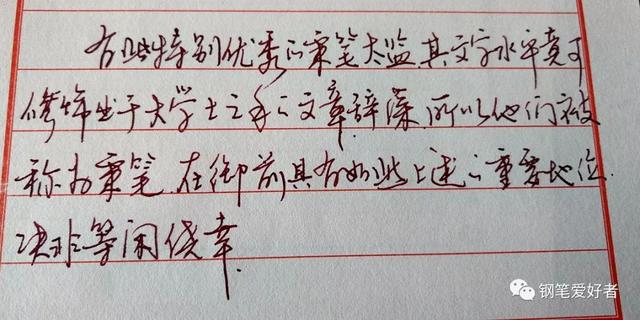 有些特别优秀的秉笔太监,其文字水平竟可
修饰出于大学士之手的文章辞藻,所以他们被
称为秉笔,在御前具有如此上述的重要地位,
决非等闲侥幸.
钢笔爱好者